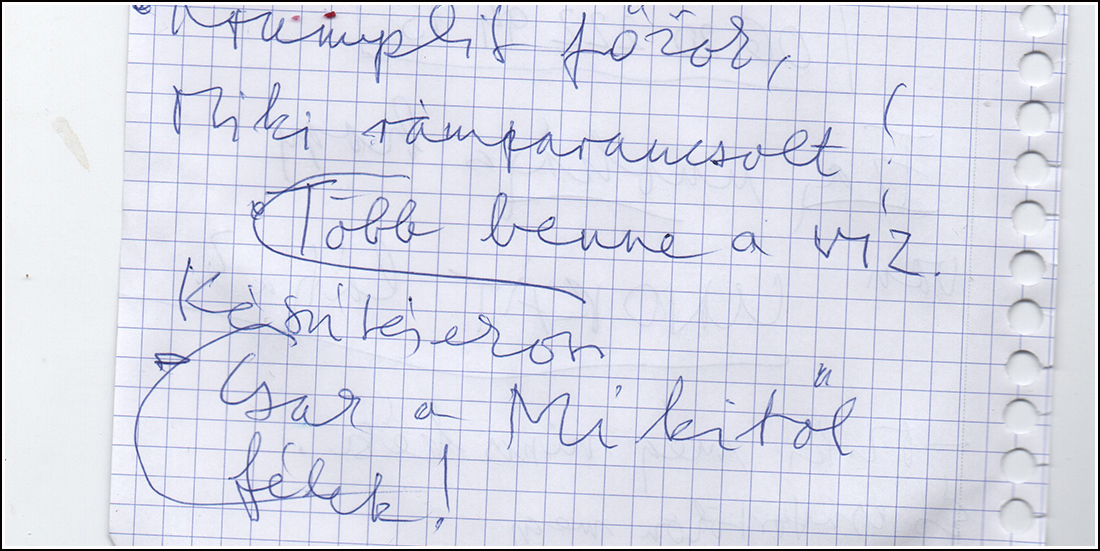 Krumplit főzőr,
Miki rámparancsolt!
Több benne a víz.
Késűtéjeron
Csar a Mikitől
félek!